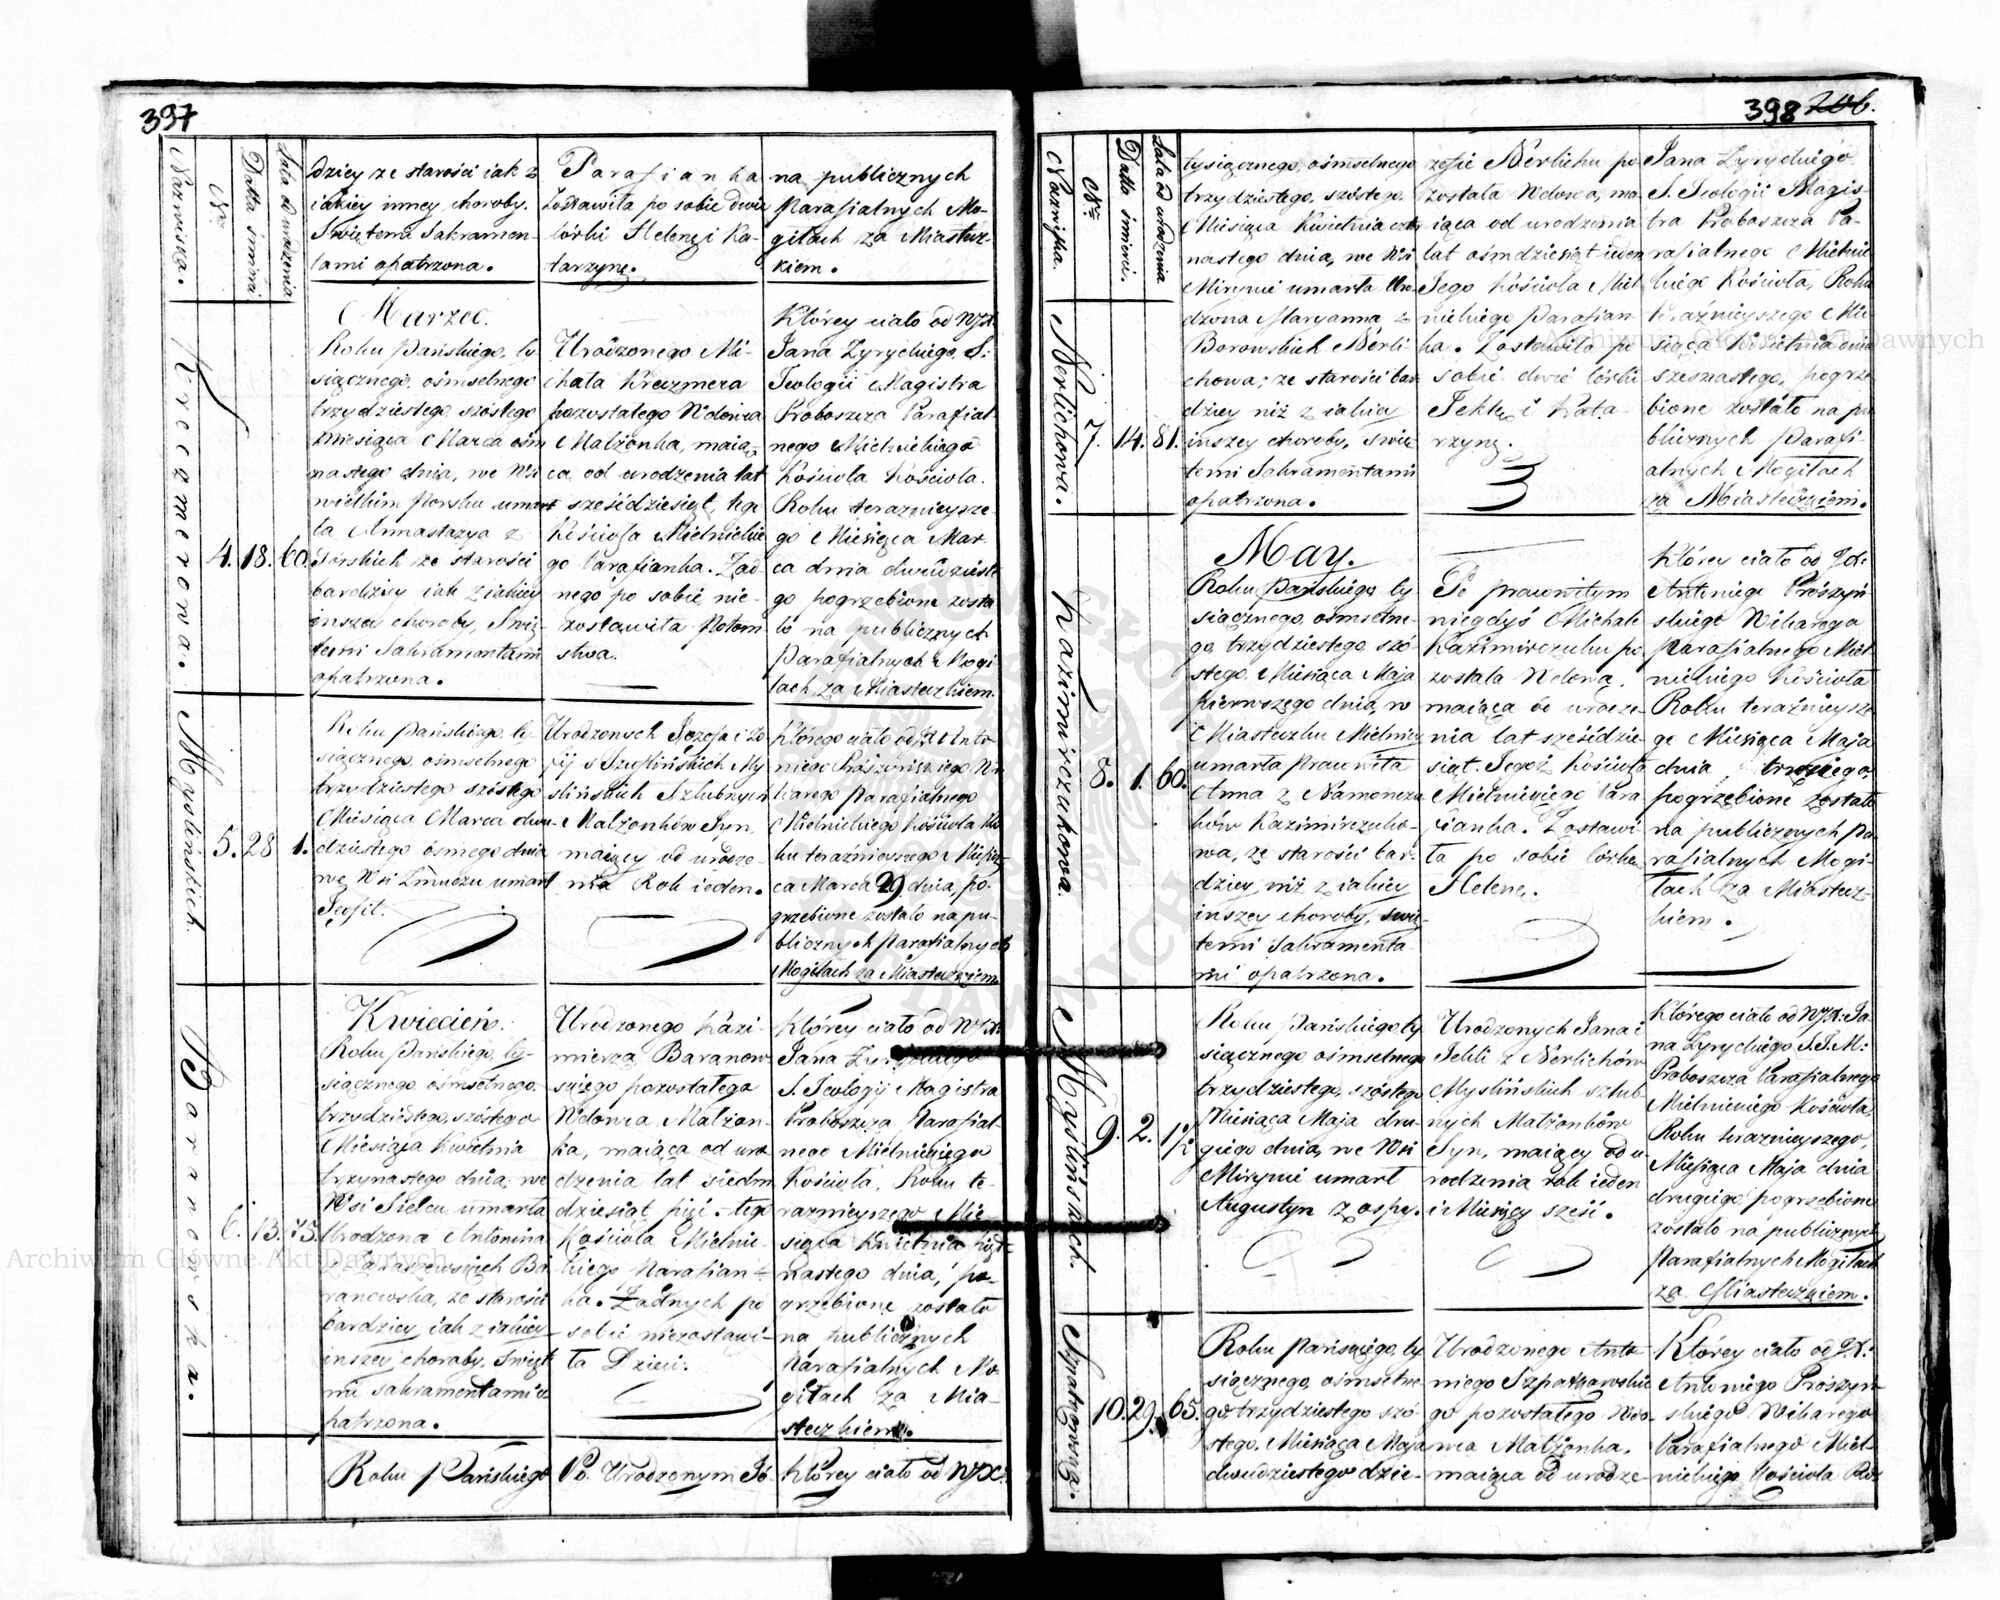 397
Nazwiska.
Nro
Datta śmierci
Lata od urodzenia
dziey ze starości iak z
iakiey inney choroby.
Swiętemi Sakramen-
tami opatrzona.
Parafianka
Zostawiła po sobie dwie
córki Helenę i Ka-
tarzynę.
na publicznych
Parafialnych Mo-
giłach za Miastecz-
kiem.
Kreczmerowa.
4. 18. 60.
Marzec.
Roku Pańskiego, ty-
siącznego, ośmsetnego
trzydziestego szóstego
Miesiąca Marca ośm
nastego dnia, we Wsi
wielkim Porsku umar
ła Annastazya z
ze starości
bardziey iak z iakiey
inszéi choroby, Swię-
temi Sakramentami
opatrzona.
Urodzonego Mi-
chała Kreczmera
pozostałego Wdowca
Małżonka, maią-
ca od urodzenia lat
sześćdziesiąt, tego
Kościoła Mielnickie
go Parafianka. Żad
nego po sobie nie-
zostawiła Potom
stwa.
Którey ciało od WJX.
Jana Zyryckiego, S:
Teologii Magistra
Proboszcza Parafial-
nego Mielnickiego
Kościoła Kościoła.
Roku teraznieysze-
go Miesiąca Mar-
ca dnia dwudzieste
go pogrzebione zosta
ło na publicznych
Parafialnych Mogi-
łach za Miasteczkiem.
Myślińskich.
5. 28 1.
Roku Pańskiego, ty-
siącznego, ośmsetnego
trzydziestego szóstego
Miesiąca Marca dwu-
dziestego ósmego dnia
we Wsi umarł
Teofil.
Urodzonych Józefa i Zo
fij z My
ślińskich Szlubnych
Małżonków Syn,
maiący od urodze-
nia Rok ieden.
Którego ciało od JX Anto
niego Prószyńskiego Wi
karego Parafialnego
Mielnickiego Kościoła Ro
ku teraźnieyszego Miesią-
ca Marca 29 dnia, po-
grzebione zostało na pu-
blicznych Parafialnych
Mogiłach za Miasteczkiem.
Baranowska.
6. 13. 75.
Kwiecień.
Roku Pańskiego, ty-
siącznego ośmsetnego,
trzydziestego, szóstego
Miesiąca Kwietnia
trzynastego dnia, we
Wsi Sielcu umarła
Urodzona Antonina
Ba
ranowska, ze starości
bardziey iak z iakiey
inszey choroby, Swięte
mi sakramentami o
patrzona.
Urodzonego Kazi-
mierza Baranow
skiego pozostałego
Wdowca Małżon-
ka, maiąca od uro
dzenia lat siedm
dziesiąt pięć. tego
Kościoła Mielnic-
kiego Parafian-
ka. Żadnych po
sobie niezostawi-
ła Dzieci.
Którey ciało od WJX.
Jana Zyryckiego
S. Teologij Magistra
Proboszcza Parafial-
nego Mielnickiego
Kościoła, Roku te-
raznieyszego Mie-
siąca Kwietnia pięt-
nastego dnia, po-
grzebione zostało
na publicznych
Parafialnych Mo-
giłach za Mia-
steczkiem.
Roku Pańskiego
Po Urodzonym Jó
Którey ciało od WJX:
398 206.
Nazwiska.
Nro
Datta śmierci.
Lata od urodzenia
Nerlichowa.
7. 14. 81.
tysiącznego, ośmsetnego
trzydziestego, szóstego
Miesiąca Kwietnia czter
nastego dnia, we Wsi
Mirynie umarła Uro-
dzona Maryanna z
Borowskich Nerli-
chowa; ze starości bar
dziey niż z iakiey
inszey choroby, Swię-
temi Sakramentami
opatrzona.
zefie Nerlichu po
została Wdowa, ma-
iąca od urodzenia
lat ośmdziesiąt ieden
Tego Kościoła Miel-
nickiego Parafian-
ka. Zostawiła po
sobie dwie córki
Teklę i Kata-
rzynę.
Jana Zyryckiego
S. Teologii Magis-
tra Proboszcza Pa-
rafialnego Mielnic-
kiego Kościoła, Roku
teraźnieyszego Mie-
siąca Kwietnia dnia
szesnastego, pogrze
bione zostało na pu
blicznych Parafi-
alnych Mogiłach
za Miasteczkiem.
Kazimirczukowa.
8. 1. 60.
May.
Roku Pańskiego, ty
siącznego, ośmsetne-
go, trzydziestego, szó-
stego, Miesiąca Maja
pierwszego dnia, w
Miasteczku Mielnicy
umarła Pracowita
Anna z
ków Kazimirczuko-
wa, ze starości bar-
dziey, niż z iakiey
inszey choroby, Swię-
temi Sakramenta-
mi opatrzona.
Po pracowitym
niegdyś Michale
Kazimirczuku po
została Wdowa,
maiąca od urodze-
nia lat sześćdzie-
siąt. Tegoż Kościoła
Mielnickiego Para
fianka. Zostawi-
ła po sobie córkę
Helenę.
Którey ciało od JX:
Antoniego Prószyń
skiego Wikarego
Parafialnego Miel
nickiego Kościoła
Roku teraźnieysze
go Miesiąca Maja
dnia trzeciego,
pogrzebione zostało
na publicznych Pa-
rafialnych Mogi-
łach za Miastecz-
kiem.
Myślińskich
9. 2. 1½
Roku Pańskiego, ty
siącznego ośmsetnego
trzydziestego, szóstego
Miesiąca Maja dru-
giego dnia, we Wsi
Mirynie umarł
Augustyn z ospy.
Urodzonych Jana i
Tekli z Nerlichów
Myślińskich szlub-
nych Małżonków
Syn, maiący od u-
rodzenia rok ieden
i Miesięcy sześć.
Którego ciało od WJX: Ja-
na Zyryckiego S.T.M:
Proboszcza Parafialnego
Mielnickiego Kościoła,
Roku teraznieyszego,
Miesiąca Maja dnia
drugiego pogrzebione
zostało na publicznych
Parafialnych Mogiłach
za Miasteczkiem.
10. 29. 65.
Roku Pańskiego, ty
siącznego, ośmsetne
go trzydziestego szó-
stego, Miesiąca Maja
dwudziestego dzie-
Urodzonego Anto
niego
go pozostałego Wdo-
wca Małżonka,
maiąca od urodze-
Którey ciało od JX:
Antoniego Prószyń-
skiego Wikarego
Parafialnego Miel-
nickiego, Kościoła Ro
Archiwum Główne Akt Dawnych
Archiwum Główne Akt Dawnych